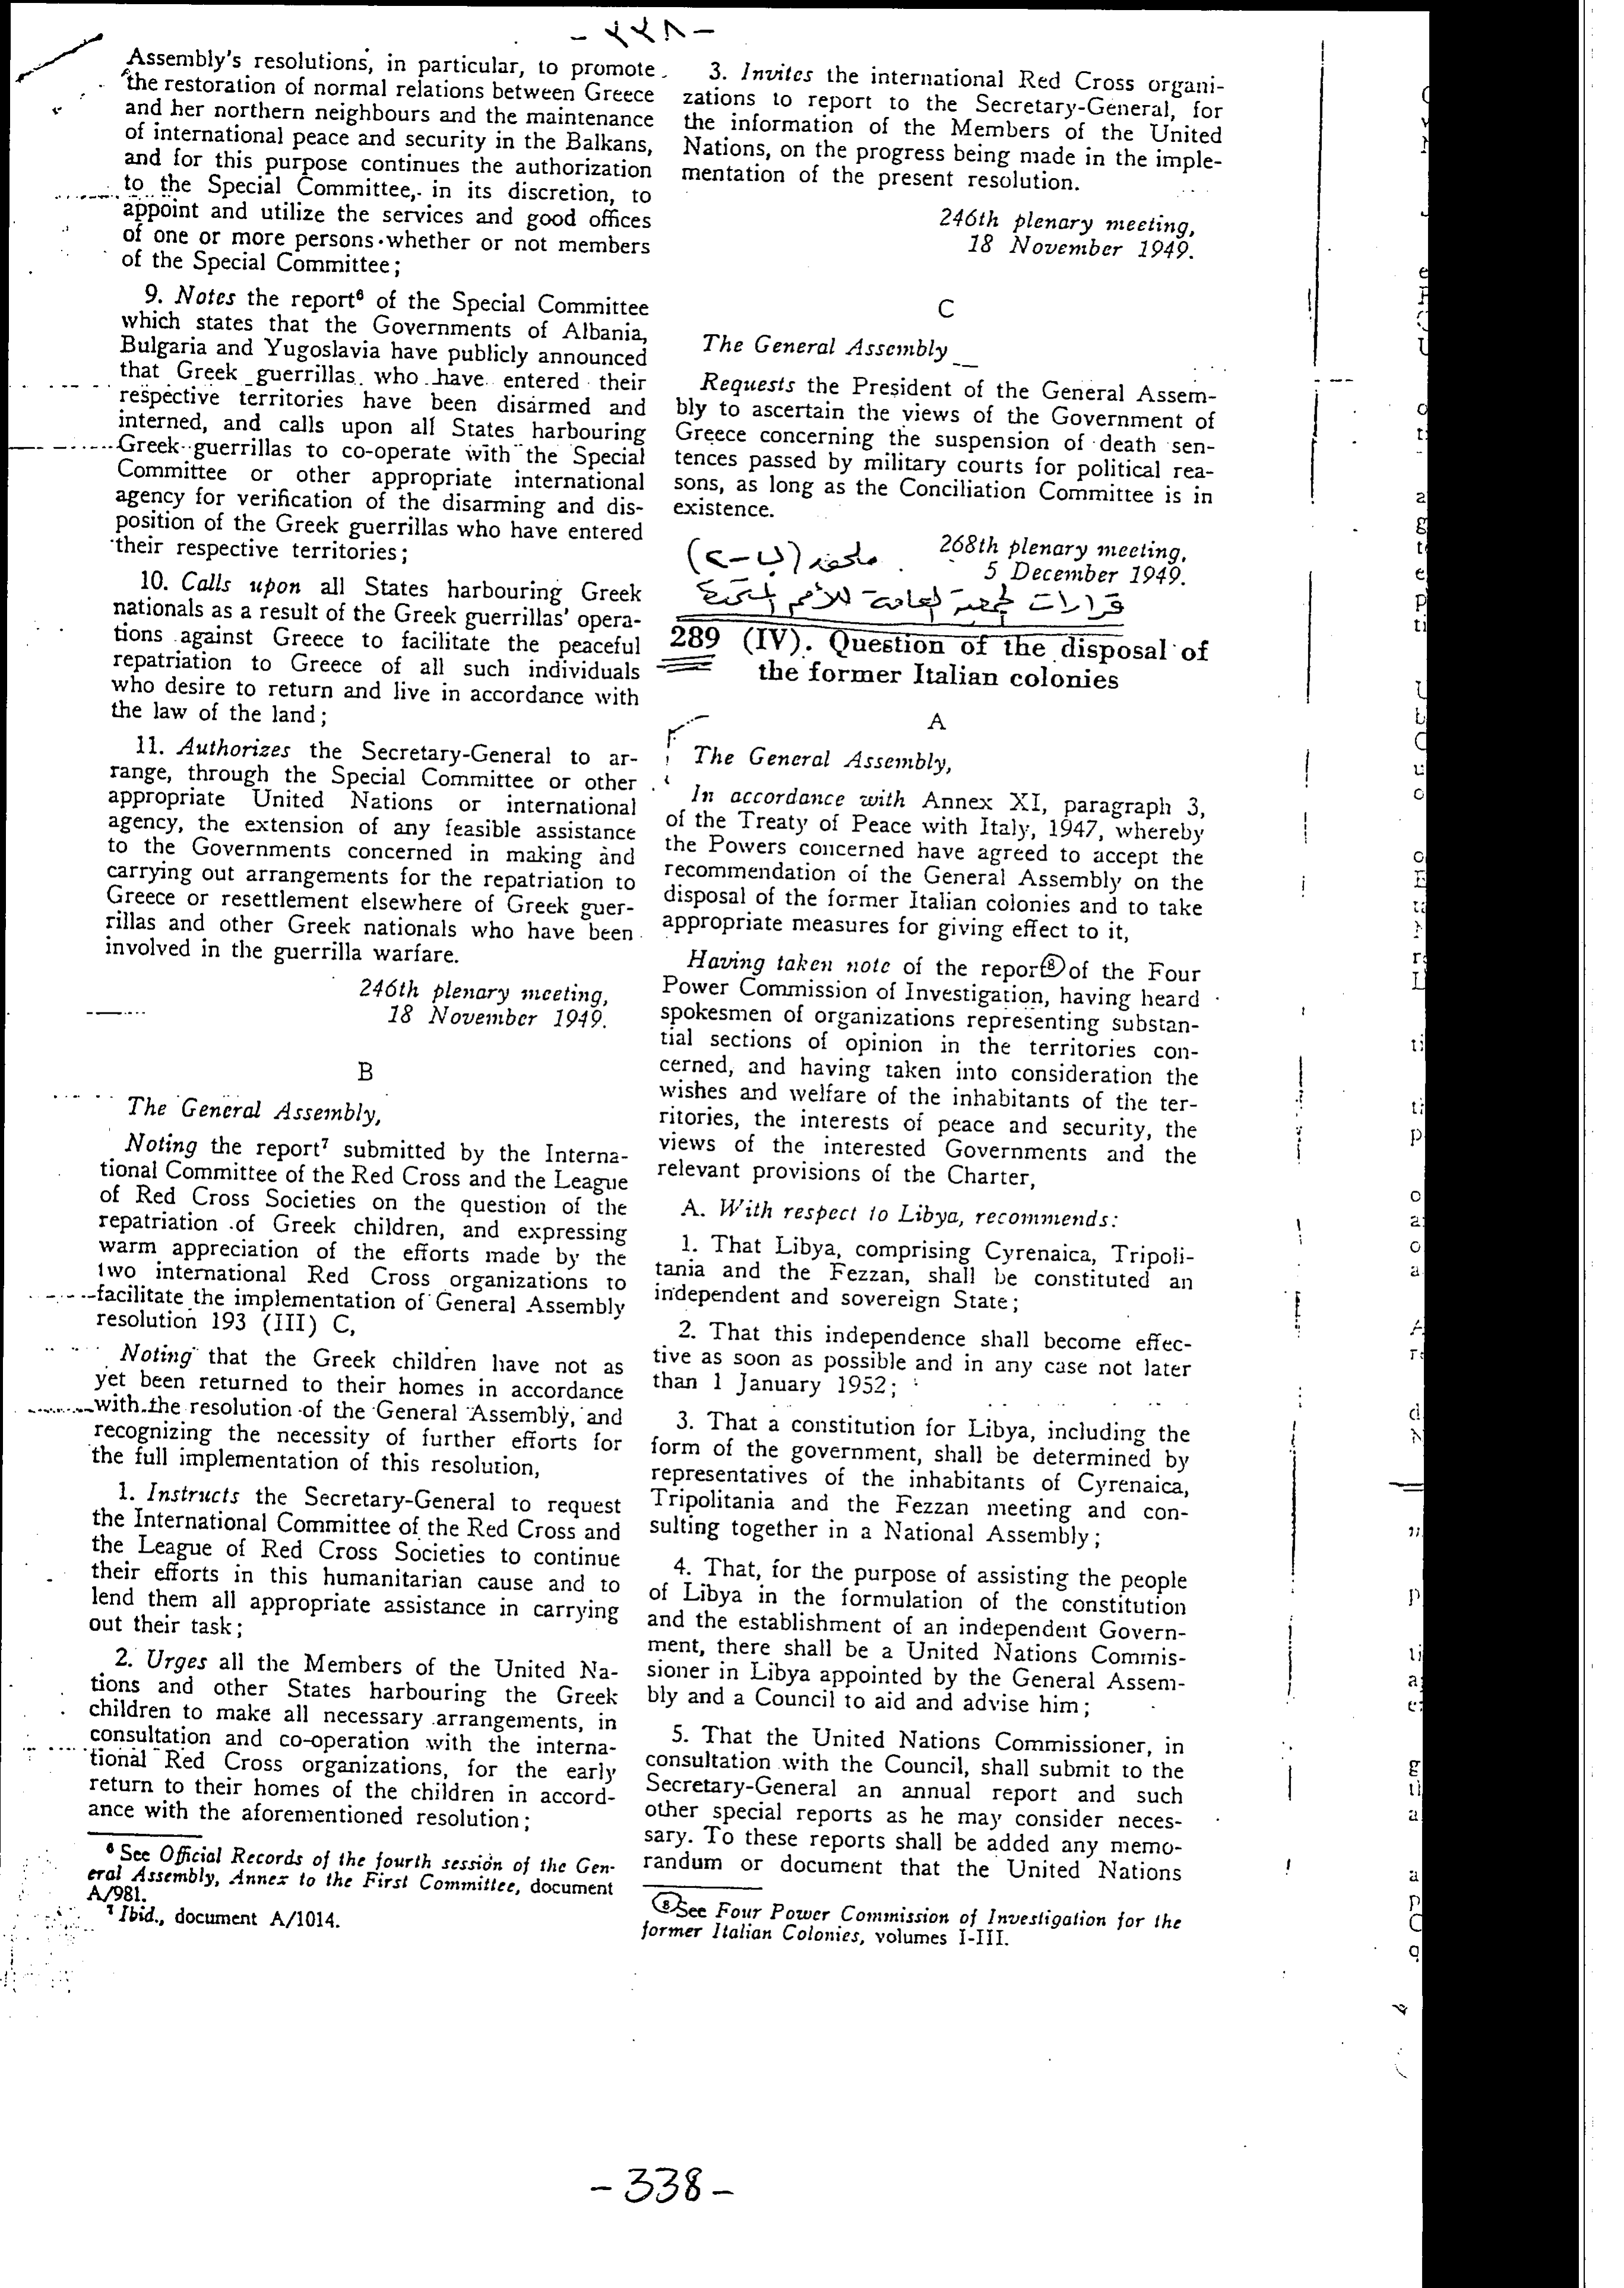 - ٣٣٨ -
Assembly's resolutions, in particular, to promote
the restoration of normal relations between Greece
and her northern neighbours and the maintenance
of international peace and security in the Balkans,
and for this purpose continues the authorization
to the Special Committee, in its discretion, to
appoint and utilize the services and good offices
of one or more persons whether or not members
of the Special Committee;
9. Notes the report⁶ of the Special Committee
which states that the Governments of Albania,
Bulgaria and Yugoslavia have publicly announced
that Greek guerrillas who have entered their
respective territories have been disarmed and
interned, and calls upon all States harbouring
Greek guerrillas to co-operate with the Special
Committee or other appropriate international
agency for verification of the disarming and dis-
position of the Greek guerrillas who have entered
their respective territories;
10. Calls upon all States harbouring Greek
nationals as a result of the Greek guerrillas' opera-
tions against Greece to facilitate the peaceful
repatriation to Greece of all such individuals
who desire to return and live in accordance with
the law of the land;
11. Authorizes the Secretary-General to ar-
range, through the Special Committee or other
appropriate United Nations or international
agency, the extension of any feasible assistance
to the Governments concerned in making and
carrying out arrangements for the repatriation to
Greece or resettlement elsewhere of Greek guer-
rillas and other Greek nationals who have been
involved in the guerrilla warfare.
246th plenary meeting,
18 November 1949.
B
The General Assembly,
Noting the report⁷ submitted by the Interna-
tional Committee of the Red Cross and the League
of Red Cross Societies on the question of the
repatriation of Greek children, and expressing
warm appreciation of the efforts made by the
two international Red Cross organizations to
facilitate the implementation of General Assembly
resolution 193 (III) C,
Noting that the Greek children have not as
yet been returned to their homes in accordance
with the resolution of the General Assembly, and
recognizing the necessity of further efforts for
the full implementation of this resolution,
1. Instructs the Secretary-General to request
the International Committee of the Red Cross and
the League of Red Cross Societies to continue
their efforts in this humanitarian cause and to
lend them all appropriate assistance in carrying
out their task;
2. Urges all the Members of the United Na-
tions and other States harbouring the Greek
children to make all necessary arrangements, in
consultation and co-operation with the interna-
tional Red Cross organizations, for the early
return to their homes of the children in accord-
ance with the aforementioned resolution;
⁶ See Official Records of the fourth session of the Gen-
eral Assembly, Annex to the First Committee, document
A/981.
⁷ Ibid., document A/1014.
3. Invites the international Red Cross organi-
zations to report to the Secretary-General, for
the information of the Members of the United
Nations, on the progress being made in the imple-
mentation of the present resolution.
246th plenary meeting,
18 November 1949.
C
The General Assembly
Requests the President of the General Assem-
bly to ascertain the views of the Government of
Greece concerning the suspension of death sen-
tences passed by military courts for political rea-
sons, as long as the Conciliation Committee is in
existence.
268th plenary meeting,
5 December 1949.
ملحق (ب-٢)
قرارات الجمعية العامة للأمم المتحدة
289 (IV). Question of the disposal of
the former Italian colonies
A
The General Assembly,
In accordance with Annex XI, paragraph 3,
of the Treaty of Peace with Italy, 1947, whereby
the Powers concerned have agreed to accept the
recommendation of the General Assembly on the
disposal of the former Italian colonies and to take
appropriate measures for giving effect to it,
Having taken note of the report⁸ of the Four
Power Commission of Investigation, having heard
spokesmen of organizations representing substan-
tial sections of opinion in the territories con-
cerned, and having taken into consideration the
wishes and welfare of the inhabitants of the ter-
ritories, the interests of peace and security, the
views of the interested Governments and the
relevant provisions of the Charter,
A. With respect to Libya, recommends:
1. That Libya, comprising Cyrenaica, Tripoli-
tania and the Fezzan, shall be constituted an
independent and sovereign State;
2. That this independence shall become effec-
tive as soon as possible and in any case not later
than 1 January 1952;
3. That a constitution for Libya, including the
form of the government, shall be determined by
representatives of the inhabitants of Cyrenaica,
Tripolitania and the Fezzan meeting and con-
sulting together in a National Assembly;
4. That, for the purpose of assisting the people
of Libya in the formulation of the constitution
and the establishment of an independent Govern-
ment, there shall be a United Nations Commis-
sioner in Libya appointed by the General Assem-
bly and a Council to aid and advise him;
5. That the United Nations Commissioner, in
consultation with the Council, shall submit to the
Secretary-General an annual report and such
other special reports as he may consider neces-
sary. To these reports shall be added any memo-
randum or document that the United Nations
⁸ See Four Power Commission of Investigation for the
former Italian Colonies, volumes I-III.
- 338 -